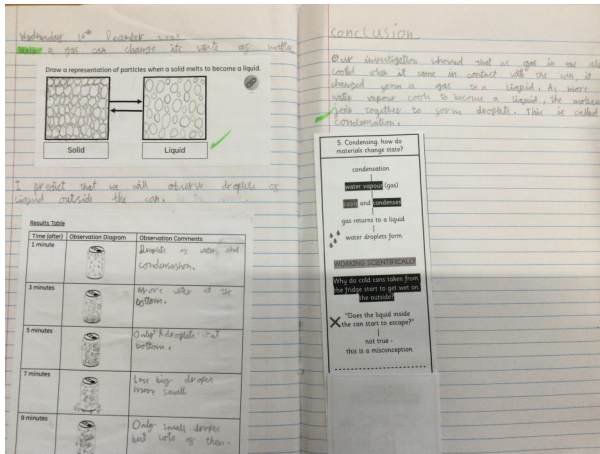 Wednesday 1
a gas can change its state of matter
Draw a representation of particles when a solid melts to become a liquid.
Solid
Liquid
I predict that we will observe droplets of
liquid outside the can.
Results Table
Time (after)
Observation Diagram
Observation Comments
1 minute
Droplets of water and
condenashon.
3 minutes
More water at the
bottom.
5 minutes
Only droplets at
bottom.
7 minutes
Less big droplets
more small
9 minutes
Only small droplets
but lots of them.
Conclusion
Our investigation showed that as gas in
cooled when it came in contact with the can, it
changed from a gas to a liquid. As more
water vapour cools to become a liquid, the
together to form droplets. This is called
condensation.
5. Condensing: how do
materials change state?
condensation
water vapour (gas)
cools and condenses
gas returns to a liquid
water droplets form
WORKING SCIENTIFICALLY
Why do cold cans taken from
the fridge start to get wet on
the outside?
"Does the liquid inside
the can start to escape?"
not true -
this is a misconception